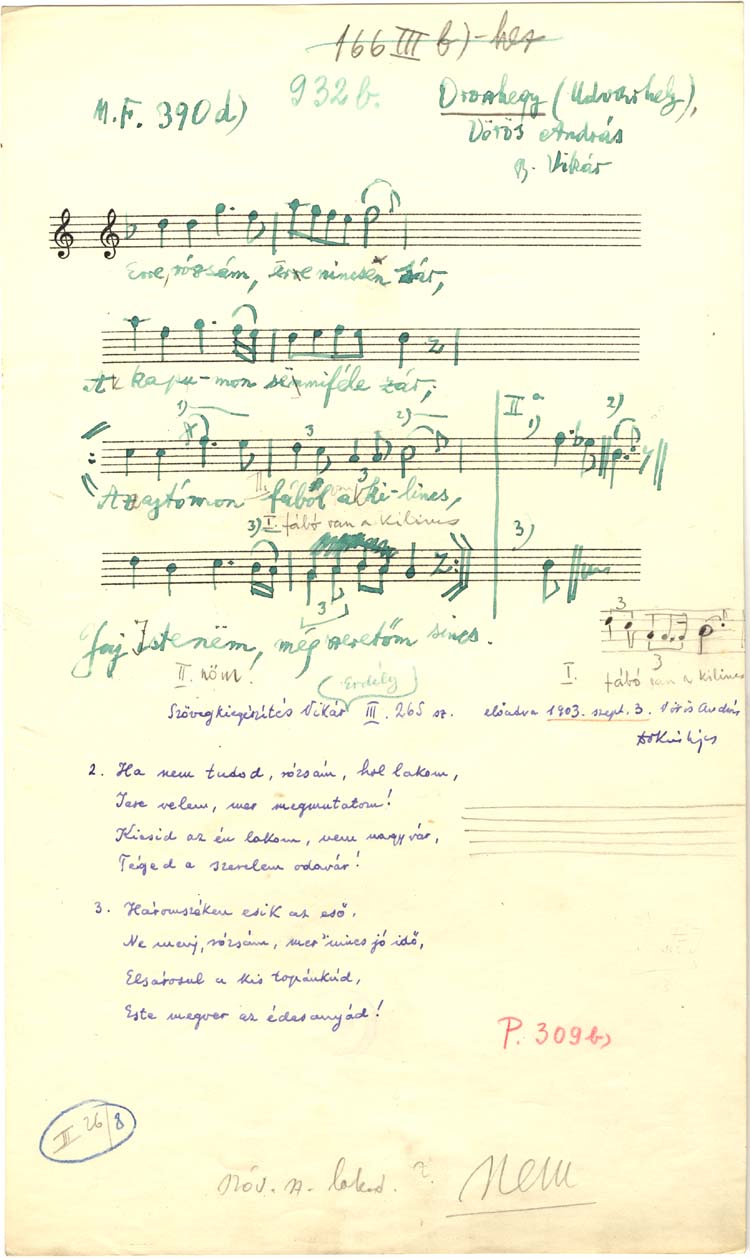 166 III b)-hez
932 b.
M.F. 390 d)
Oroszhegy (Udvarhely),
Vörös András
Vikár
Erre, rózsám, erre nincsen sár,
A kapu-mon semmiféle zár;
1)
2)
3
3
II a
1)
2)
Az ajtómon fából a ki-lincs,
3) I. fábó van a kilincs
3)
3
Jaj Istenëm, még szeretőm sincs.
II. nöm!
3
3
I. fábó van a kilincs
Erdély
Szövegkiegészítés Vikár III. 265 sz. előadva 1903. szept. 3. Vörös András
2. Ha nem tudod, rózsám, hol lakom,
Jere velem, mer megmutatom!
Kicsid az én lakom, nem nagy vár,
Téged a szerelem odavár!
3. Háromszéken esik az eső,
Ne menj, rózsám, mer nincs jó idő,
Elsárosul a kis topánkád,
Este megver az édesanyád!
P. 309 b)
III 26/8
Nem